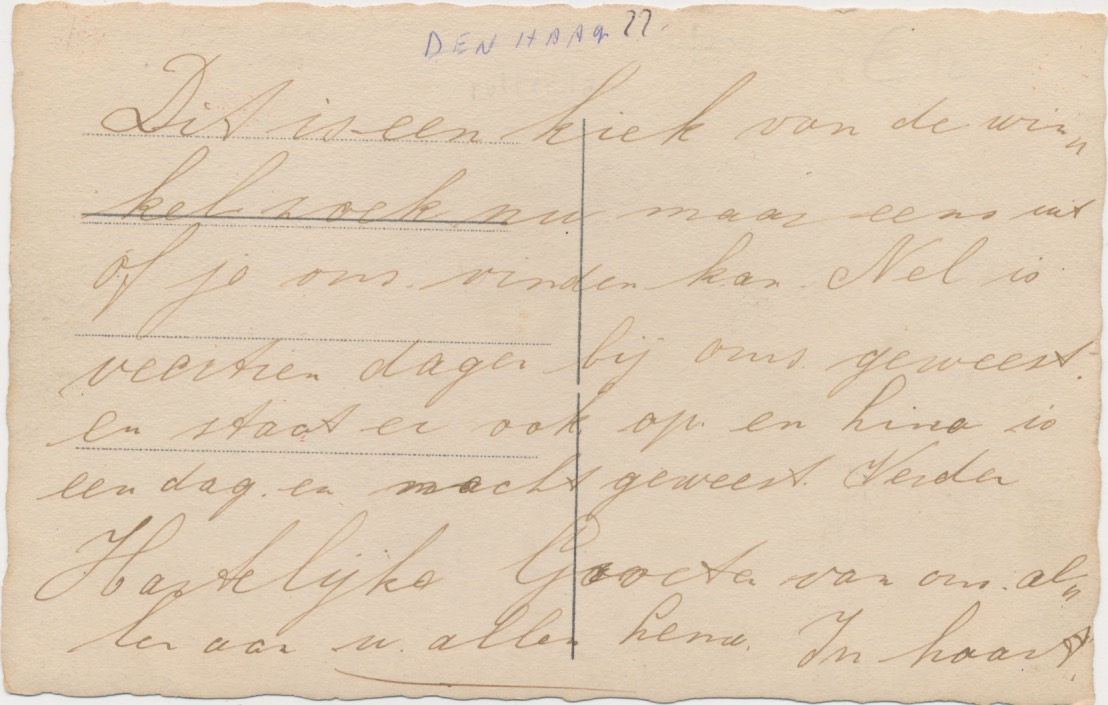 DEN HAAG ??.
Dit is een kiek van de win„
kel zoek nu maar eens uit
of je ons vinden kan. Nel is
veertien dagen bij ons geweest.
en staat er ook op en Lina is
een dag. en nacht geweest. Verder
Hartelijke Groeten van ons. al„
len aan u. allen Lena. In haast